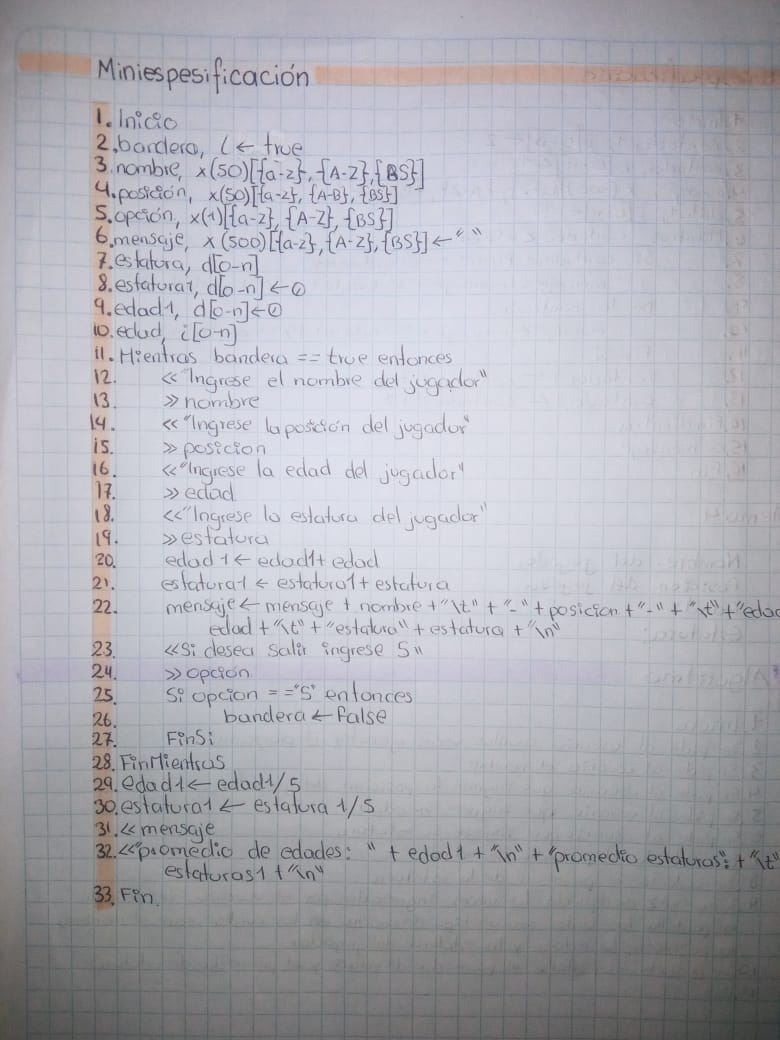 Miniespesificación
1. Inicio
2. bandera, l ← true
3. nombre, x(50)[{a-z}, {A-Z}, {BS}]
4. posición, x(50)[{a-z}, {A-B}, {BS}]
5. opción, x(1)[{a-z}, {A-Z}, {BS}]
6. mensaje, x(500)[{a-z}, {A-Z}, {BS}] ← " "
7. estatura, d[0-n]
8. estatura1, d[0-n] ← 0
9. edad1, d[0-n] ← 0
10. edad, i[0-n]
11. Mientras bandera == true entonces
12. << "Ingrese el nombre del jugador"
13. >> nombre
14. << "Ingrese la posición del jugador"
15. >> posicion
16. << "Ingrese la edad del jugador"
17. >> edad
18. << "Ingrese la estatura del jugador"
19. >> estatura
20. edad1 ← edad1 + edad
21. estatura1 ← estatura1 + estatura
22. mensaje ← mensaje + nombre + "\t" + "-" + posicion + "-" + "\t" + "edad
edad + "\t" + "estatura" + estatura + "\n"
23. << Si desea salir ingrese S"
24. >> opción
25. Si opcion == "S" entonces
26. bandera ← false
27. FinSi
28. FinMientras
29. edad1 ← edad1/5
30. estatura1 ← estatura1/5
31. << mensaje
32. << "promedio de edades: " + edad1 + "\n" + "promedio estaturas": + "\t"
estaturas1 + "\n"
33. Fin.